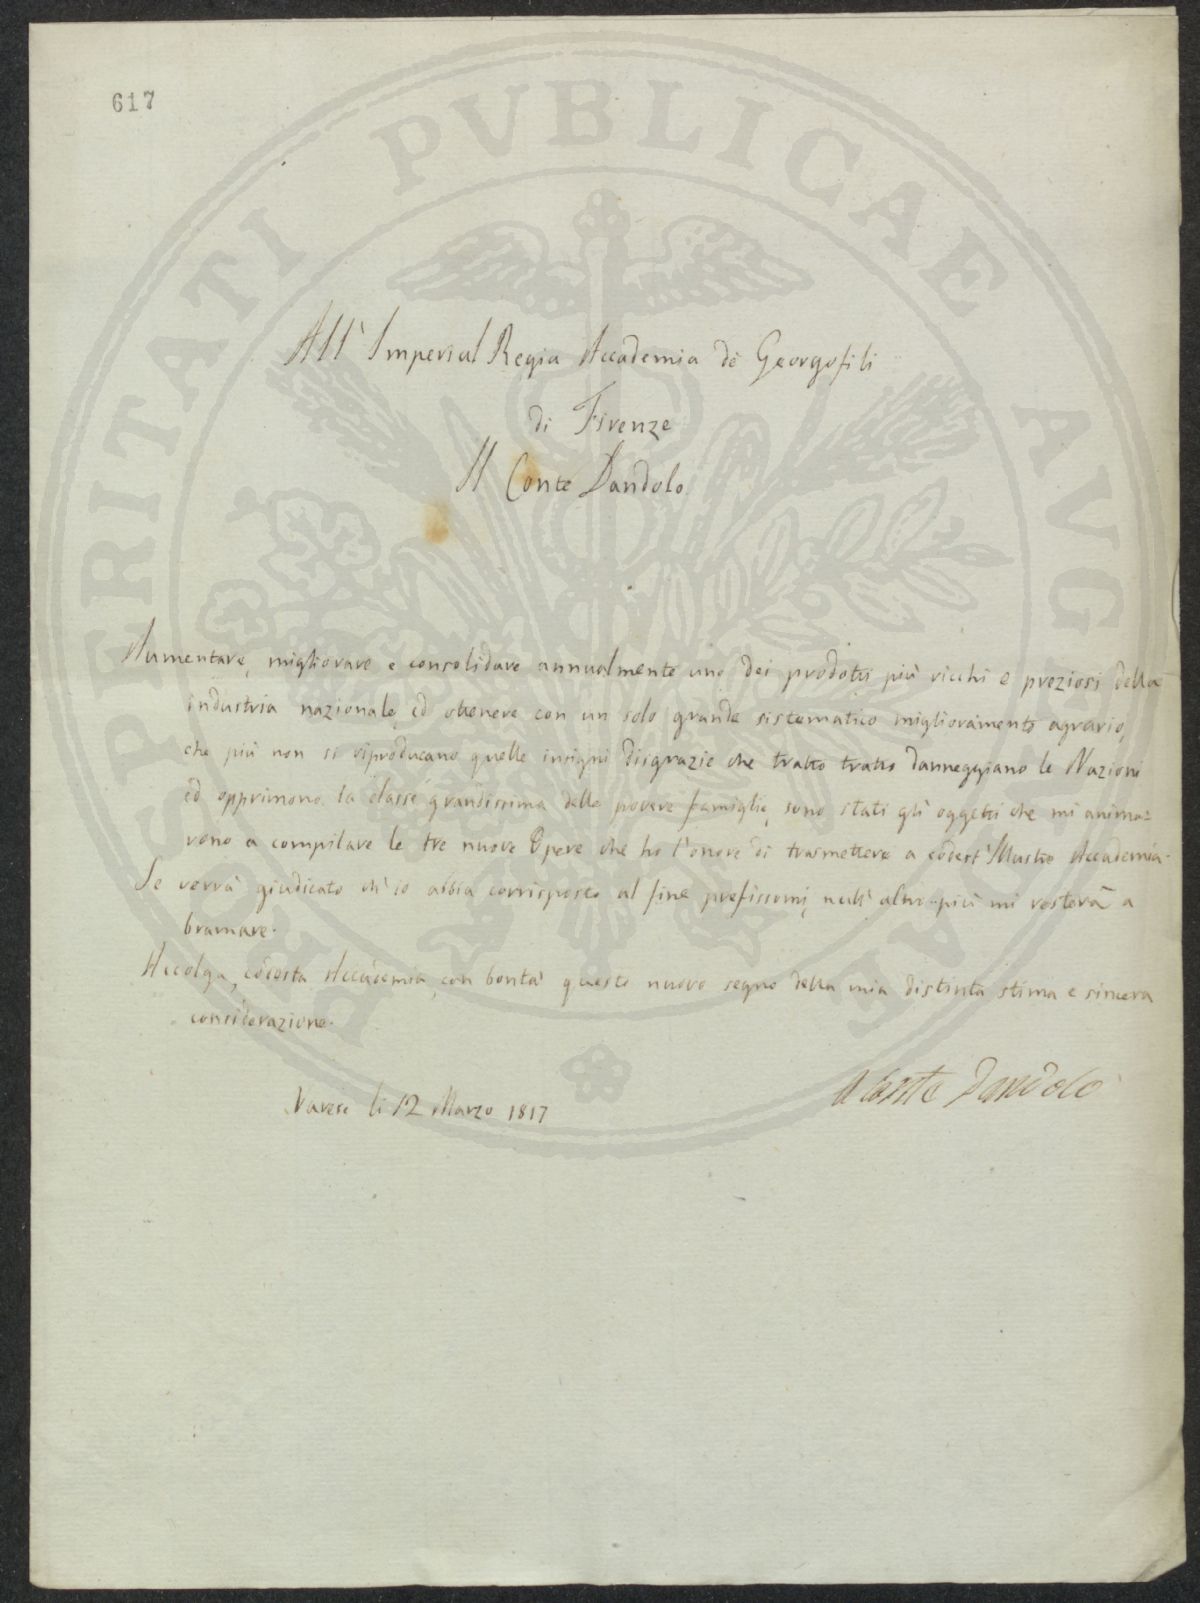 617
PROSPERITATI PVBLICAE AVGENDAE
All' Imperial Regia Accademia de Georgofili
di Firenze
Il Conte Dandolo
Aumentare, migliorare e consolidare annualmente uno dei prodotti più ricchi e preziosi della
industria nazionale, ed ottenere con un solo grande sistematico miglioramento agrario,
che più non si riproducano quelle insigni disgrazie che tratto tratto danneggiano le Nazioni
ed opprimono la classe grandissima delle povere famiglie, sono stati gli oggetti che mi anima=
rono a compilare le tre nuove Opere che ho l'onore di trasmettere a codest' Illustre Accademia.
Se verrà giudicato ch' io abbia corrisposto al fine prefissomi, null' altro più mi resterà a
bramare.
Accolga, codesta Accademia, con bontà questo nuovo segno della mia distinta stima e sincera
considerazione.
Varese li 12 Marzo 1817
Il Conte Dandolo